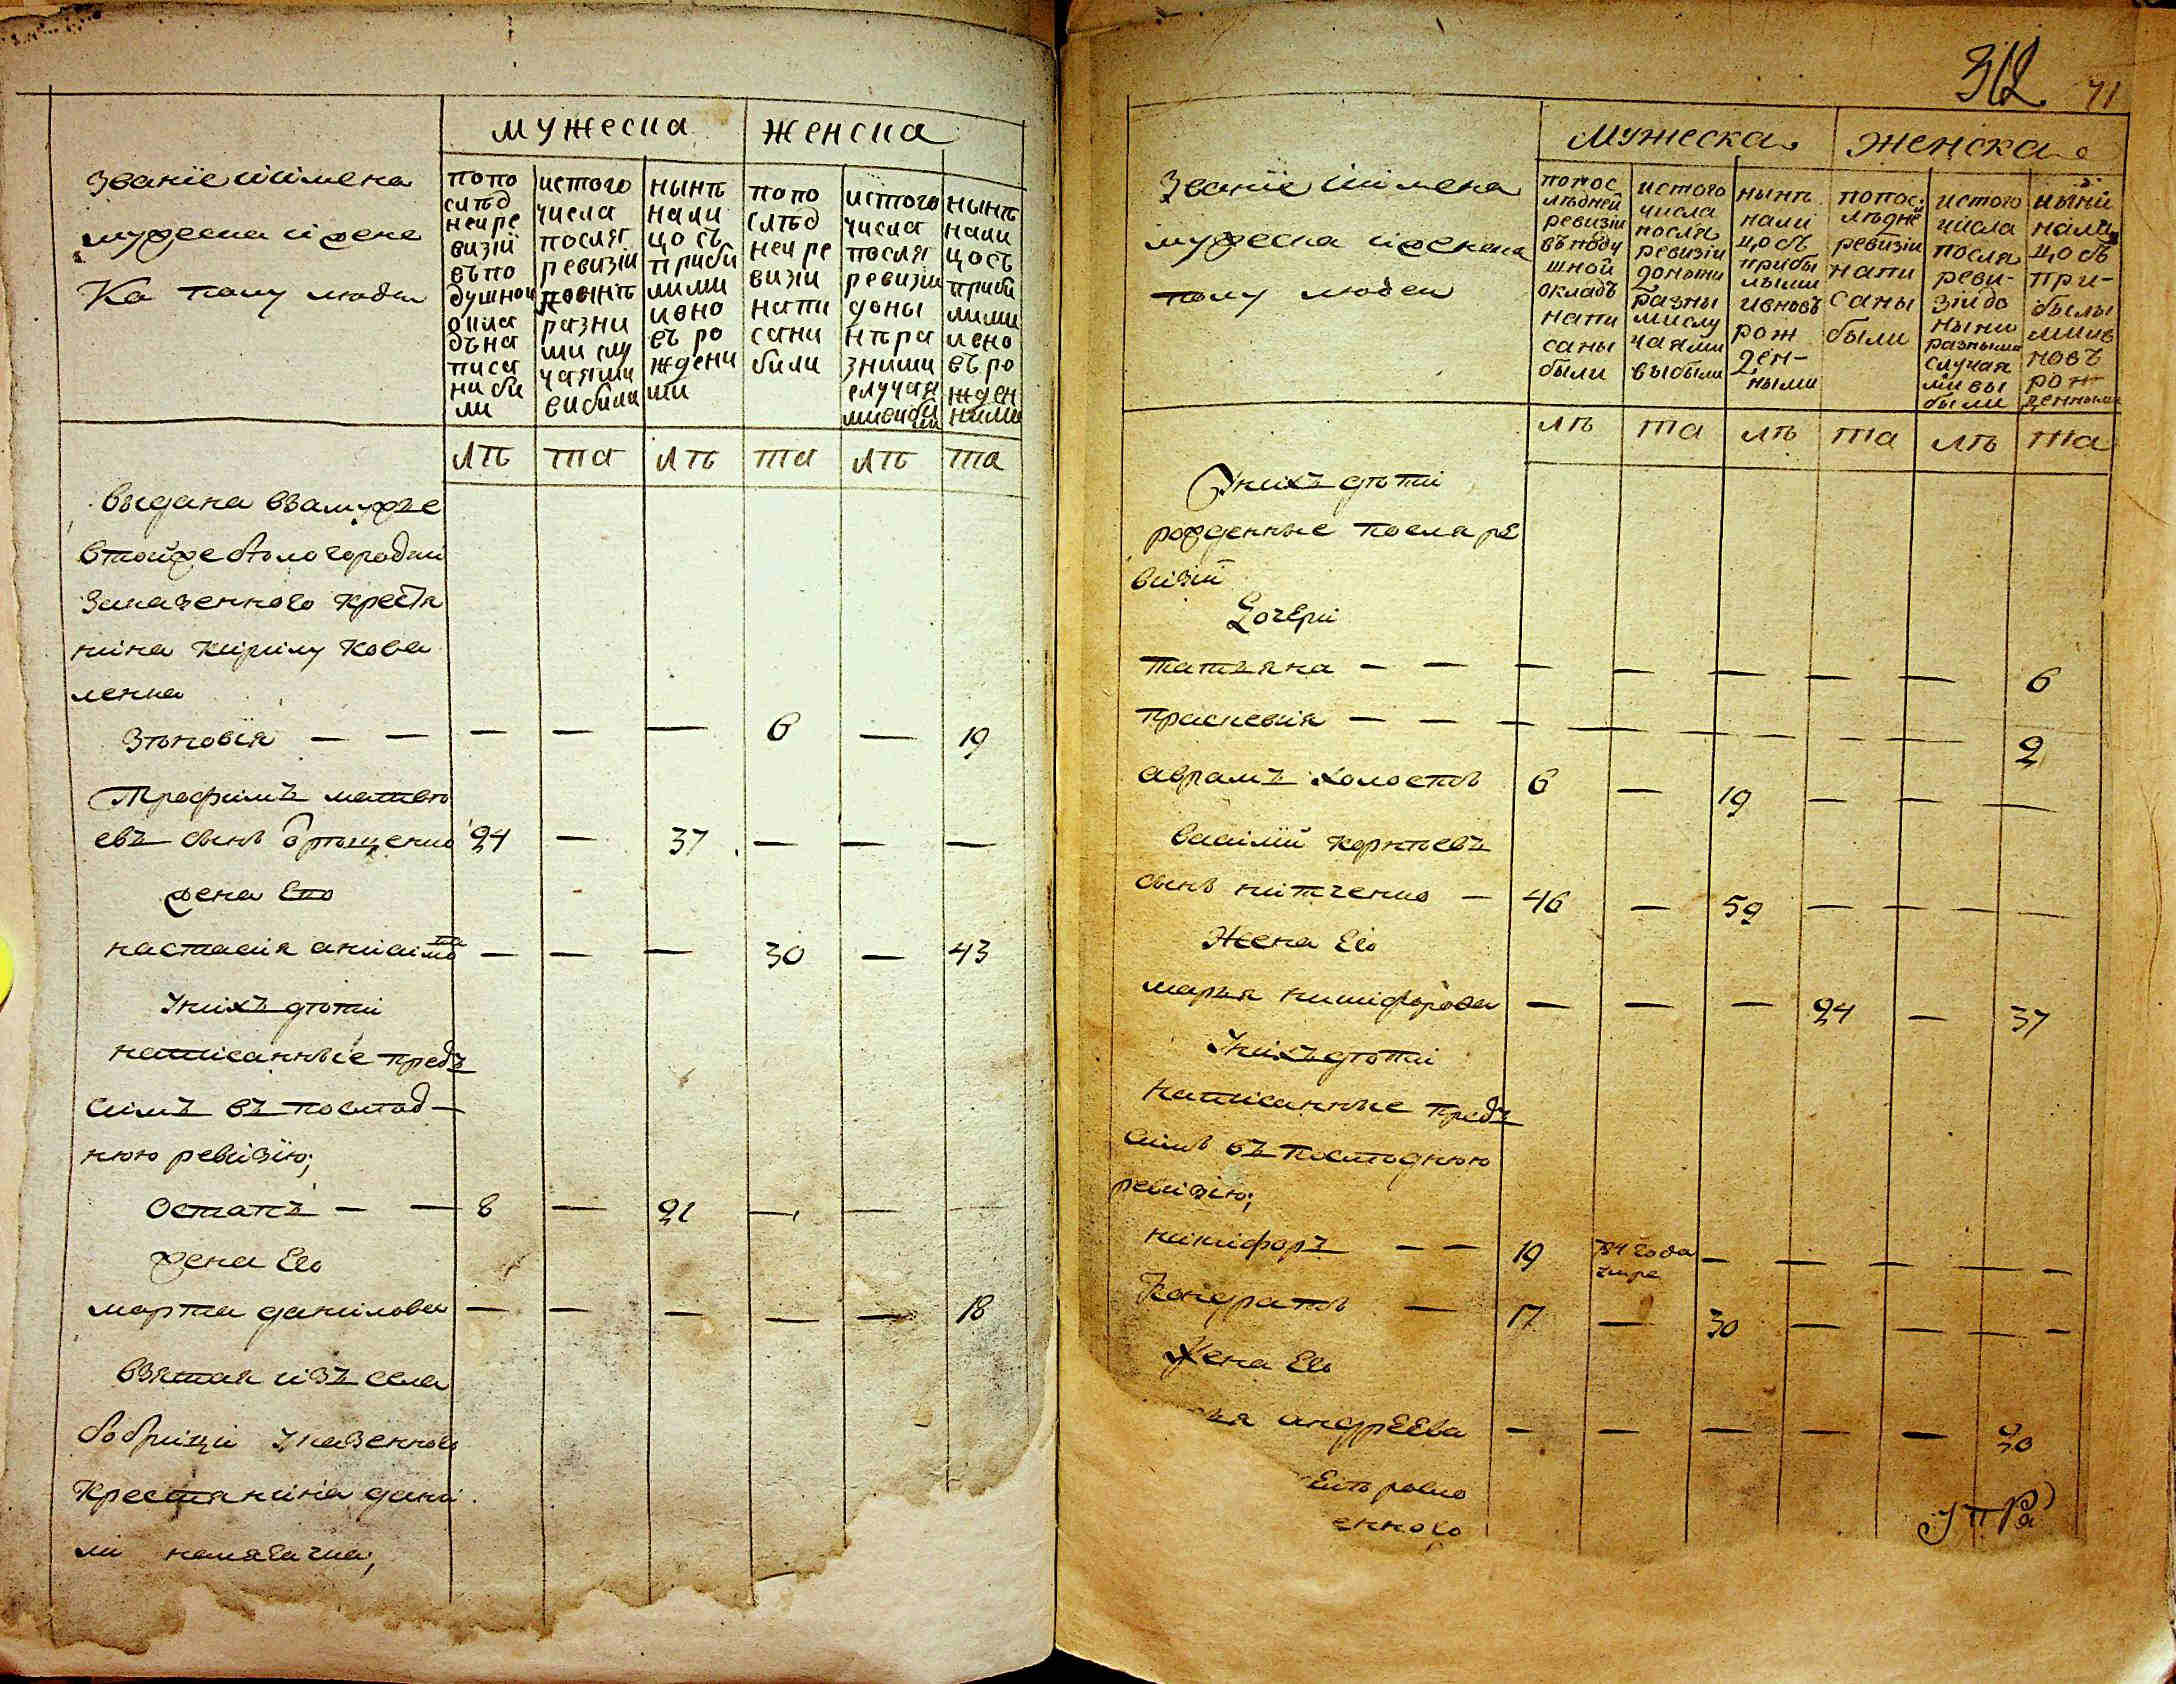 мужеска женска
Званїе и имена
мужеска и жене
Ка полу людеи
попо
слѣд
неи ре
визіи
въ по
душнои
окла
дъ на
писа
ни би
ли
истого
числа
посля
ревизіи
донынѣ
разни
ми слу
чаями
вибили
нынѣ
нали
цо съ
приби
лими
ивно
въ ро
ждени
ми
попо
слѣд
неи ре
визіи
напи
сани
били
истого
числа
посля
ревизіи
доны
нѣ ра
зними
случая
ми виби
ли
нынѣ
нали
цо съ
приби
лими
ивно
въ ро
жден
ними
лѣ та лѣ та лѣ та
выдана взамужъе
в тойже
заказенного крестя
нина Кирилу Кова
ленка
Зѣновїя — — — — — 6 — 19
Трофимъ матвѣ
евъ сынъ 24 — 37 — — —
жена Его
настасия анисимова — — — 30 — 43
У нихъ дѣти
написанные предъ
симъ въ послѣд-
нюю ревизїю;
Остапъ — — 8 — 21 — — —
жена Его
марта данилова — — — — — 18
взятая изъ села
бобрици у казенного
крестянина дани
ли
312 41
Мужеска женска
Званїе и имена
мужеска и женска
полу людеи
попос
лѣдней
ревизіи
въ поду
шной
окладъ
напи
саны
были
истого
числа
посля
ревизіи
донынѣ
разны
ми слу
чаями
выбыли
нынѣ
нали
цо съ
прибы
лыми
ивновъ
рож
ден-
ными
попос
лѣдне
ревизіи
напи
саны
были
истого
числа
посля
реви-
зіи до
ныни
разными
случая
ми вы
были
ныни
нали
цо съ
при-
былы
мии в
новъ
рож
денными
лѣ та лѣ та лѣ та
У нихъ дѣти
рожденные посля ре
визіи
Дочери
татьяна — — — — — — — 6
прасковія — — — — — — — 2
аврамъ холостъ 6 — 19 — — —
василий Корнѣевъ
сынъ нитченко — 46 — 59 — — — —
Жена Его
марья никифорова — — — 24 — 37
У нихъ дѣти
написанные предъ
симъ въ послѣднюю
ревизію;
никифоръ — — 19 784 года — — — — —
умре
Кондратъ — 17 — 30 — — — —
Жена Его
андреева — — — — — 30
енного